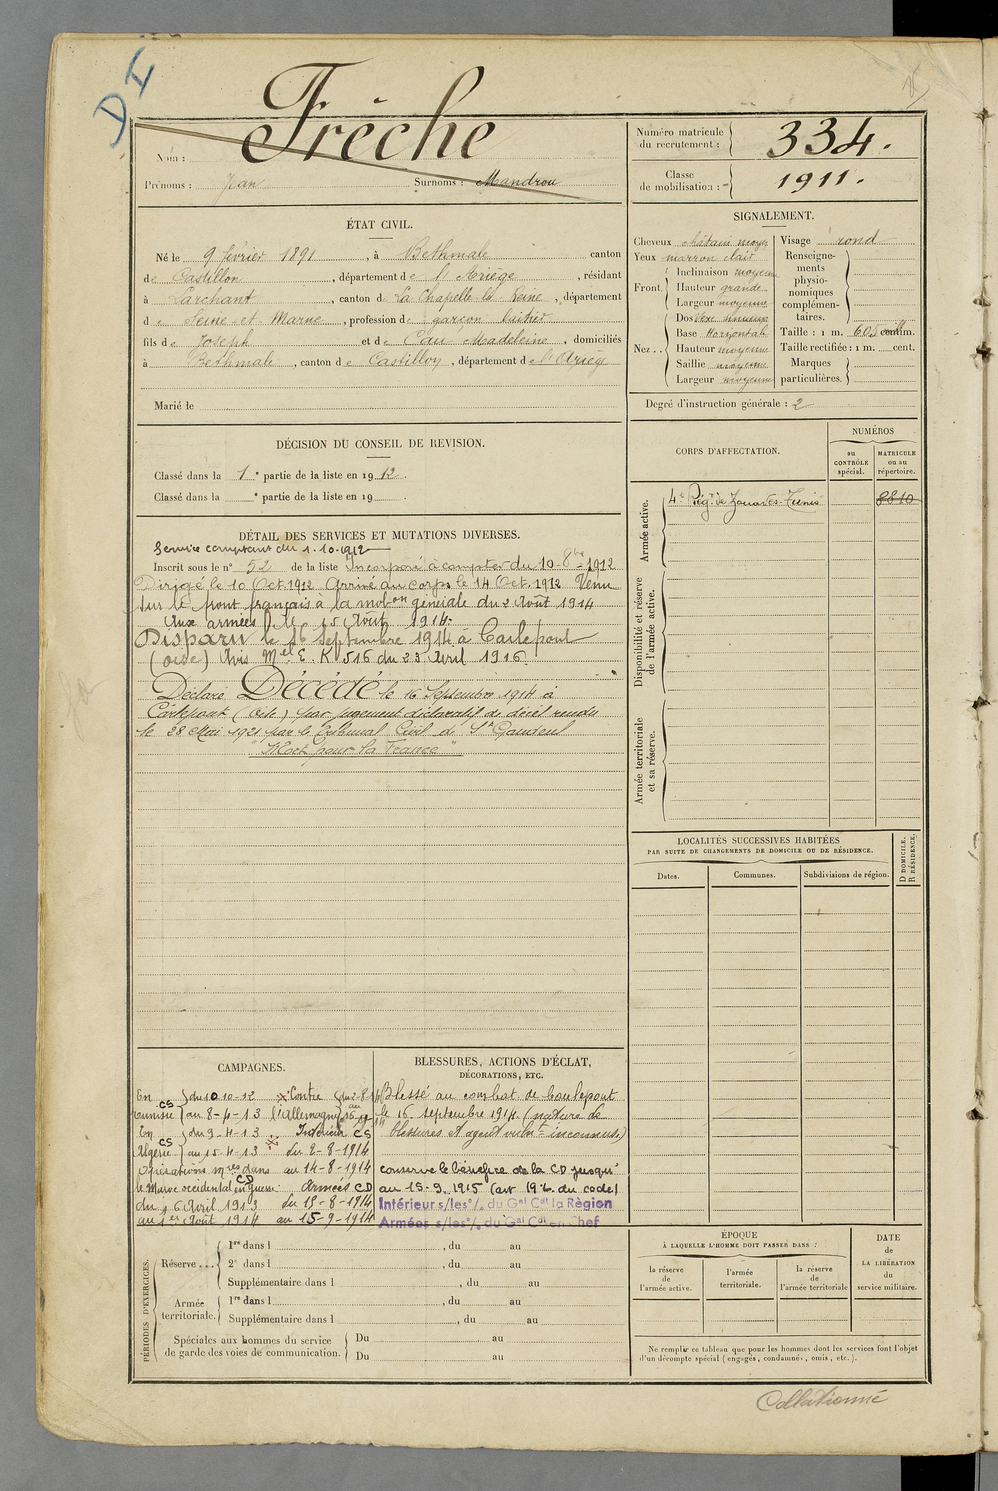 D I
Frêche
Nom :
Prénoms : Jean Surnoms : Mandrou
Numéro matricule du recrutement : 334.
Classe de mobilisation : 1911.
ÉTAT CIVIL.
Né le 9 février 1891, à Bethmale canton
de Castillon, département de l'Ariège, résidant
à Larchant, canton de La Chapelle la Reine, département
de Seine-et-Marne, profession de garçon laitier
fils de Joseph et de Eau Madeleine, domiciliés
à Bethmale, canton de Castillon, département de l'Ariège
Marié le
DÉCISION DU CONSEIL DE REVISION.
Classé dans la 1e partie de la liste en 1912.
Classé dans la e partie de la liste en 19 .
DÉTAIL DES SERVICES ET MUTATIONS DIVERSES.
Service comptant du 1-10-1912
Inscrit sous le n° 52 de la liste Incorporé à compter du 10-8bre-1912
Dirigé le 10 Oct. 1912 Arrivé au corps le 14 Oct. 1912 Venu
sur le front français à la mobon générale du 2 Août 1914
Aux armées le 15 Août 1914.
Disparu le 16 Septembre 1914 à Carlepont
(Oise) Avis Mel E. K 516 du 25 Avril 1916.
Déclaré Décédé le 16 Septembre 1914 à
Carlepont (Oise) par jugement déclaratif de décès rendu
le 28 Mai 1921 par le Tribunal Civil de St Gaudens
"Mort pour la France"
SIGNALEMENT.
Cheveux châtain moyen
Yeux marron clair
Front. Inclinaison moyenne
Hauteur grande
Largeur moyenne
Nez .. Dos sinueux
Base Horizontale
Hauteur moyenne
Saillie moyenne
Largeur moyenne
Visage rond
Renseignements physionomiques complémentaires.
Taille : 1 m. 60 centim.
Taille rectifiée : 1 m. cent.
Marques particulières.
Degré d'instruction générale : 2
CORPS D'AFFECTATION.
NUMÉROS
au CONTRÔLE spécial.
MATRICULE ou au répertoire.
Armée active.
4e Régt de Zouaves-Tunis 8810
Disponibilité et réserve de l'armée active.
Armée territoriale et sa réserve.
LOCALITÉS SUCCESSIVES HABITÉES
PAR SUITE DE CHANGEMENTS DE DOMICILE OU DE RÉSIDENCE.
Dates.
Communes.
Subdivisions de région.
D DOMICILE. R RÉSIDENCE.
CAMPAGNES.
En Tunisie CS du 10 10-12 au 8-4-13
En Algérie CS du 9-4-13 au 15-4-13
Opérations mres dans
le Maroc occidental en guerre CD
du 16 Avril 1913
au 1er Août 1914
Contre l'Allemagne du 2-8-14 au
Intérieur CS
du 2-8-1914
au 14-8-1914
Armées CD
du 15-8-1914
au 15-9-1914
BLESSURES, ACTIONS D'ÉCLAT,
DÉCORATIONS, ETC.
Blessé au combat de Carlepont
le 16 septembre 1914 (nature de
blessures et agent vulnt inconnus)
conserve le bénéfice de la CD jusqu'
au 15-9-1915 (art 196 du code)
Intérieur s/les o/. du Gal Cdt la Région
Armées s/les o/. du Gal Cdt en Chef
PÉRIODES D'EXERCICES.
Réserve ... 1re dans l , du au
2e dans l , du au
Supplémentaire dans l , du au
Armée territoriale. 1re dans l , du au
Supplémentaire dans l , du au
Spéciales aux hommes du service
de garde des voies de communication.
Du au
Du au
ÉPOQUE
À LAQUELLE L'HOMME DOIT PASSER DANS :
la réserve de l'armée active.
l'armée territoriale.
la réserve de l'armée territoriale
DATE de LA LIBÉRATION du service militaire.
Ne remplir ce tableau que pour les hommes dont les services font l'objet
d'un décompte spécial (engagés, condamnés, omis, etc.).
Collationné